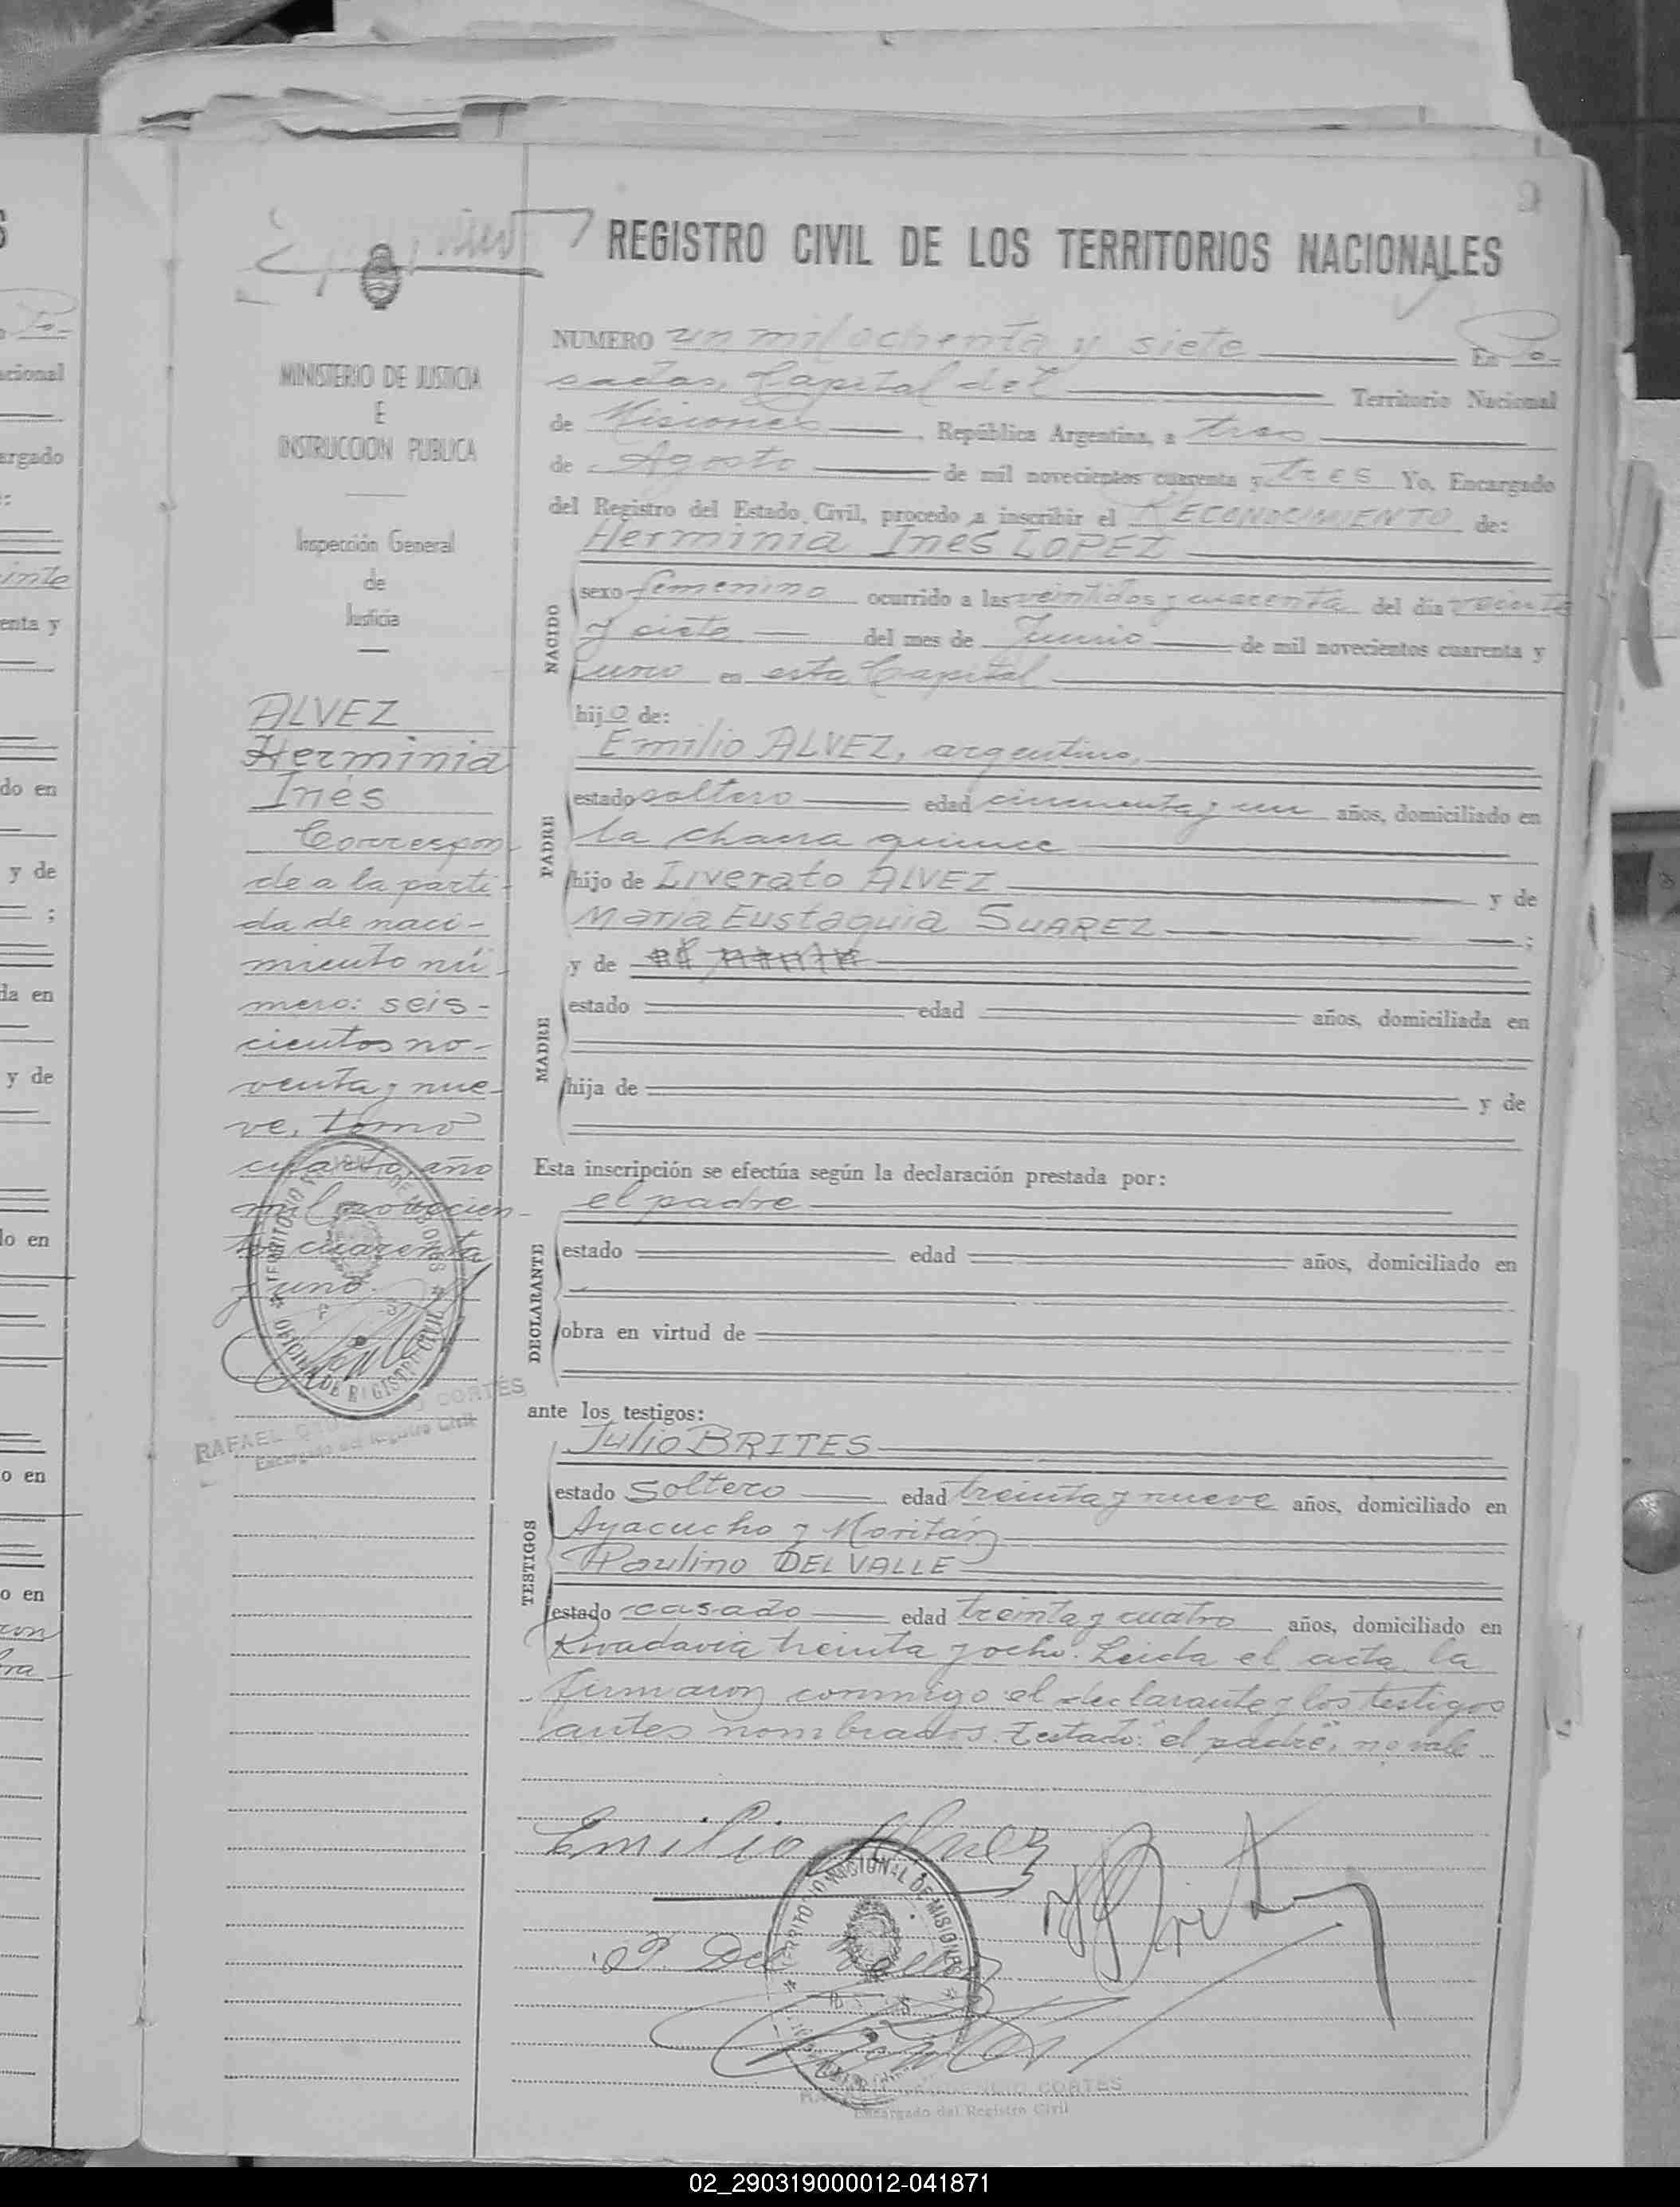 REGISTRO CIVIL DE LOS TERRITORIOS NACIONALES
MINISTERIO DE JUSTICIA
E
INSTRUCCION PUBLICA
Inspección General
de
Justicia
ALVEZ
Herminia
Inés
Correspon-
de a la parti-
da de naci-
miento nú-
mero: seis-
cientos no-
venta y nue-
ve, tomo
cuarto, año
mil novecien-
tos cuarenta
y uno.
NUMERO un mil ochenta y siete En Po-
sadas, Capital del Territorio Nacional
de Misiones, República Argentina, a tres
de Agosto de mil novecientos cuarenta y tres Yo, Encargado
del Registro del Estado Civil, procedo a inscribir el RECONOCIMIENTO de:
Herminia Inés LOPEZ
NACIDO
sexo femenino ocurrido a las veintidos y cuarenta del día veinte
y siete del mes de Junio de mil novecientos cuarenta y
uno en esta Capital
hijo de:
PADRE
Emilio ALVEZ, argentino,
estado soltero edad cincuenta y un años, domiciliado en
la chacra quince
hijo de Liverato ALVEZ y de
María Eustaquia SUAREZ ;
MADRE
y de
estado edad años, domiciliada en
hija de y de
Esta inscripción se efectúa según la declaración prestada por:
el padre
DECLARANTE
estado edad años, domiciliado en
obra en virtud de
ante los testigos:
TESTIGOS
Julio BRITES
estado soltero edad treinta y nueve años, domiciliado en
Ayacucho y Moritán
Paulino DEL VALLE
estado casado edad treinta y cuatro años, domiciliado en
Rivadavia treinta y ocho. Leída el acta, la
firmaron conmigo el declarante y los testigos
antes nombrados. Testado: "el padre", no vale
Emilio Alvez
P. Del Valle
TERRITORIO NACIONAL DE MISIONES
OFICINA DE REGISTRO CIVIL
RAFAEL CORTES
Encargado del Registro Civil
CORTES
Encargado del Registro Civil
o Po-
cional
argado
inte
enta y
do en
y de
;
da en
y de
do en
o en
o en
02_290319000012-041871